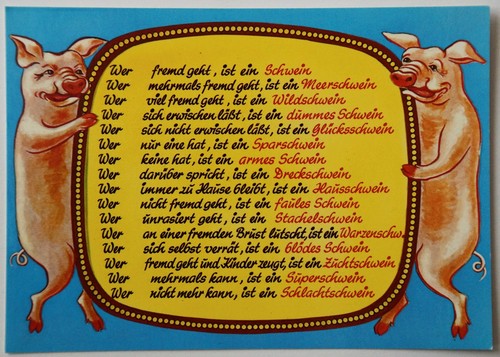 Wer fremd geht, ist ein Schwein
Wer mehrmals fremd geht, ist ein Meerschwein
Wer viel fremd geht, ist ein Wildschwein
Wer sich erwischen läßt, ist ein dummes Schwein
Wer sich nicht erwischen läßt, ist ein Glücksschwein
Wer nur eine hat, ist ein Sparschwein
Wer keine hat, ist ein armes Schwein
Wer darüber spricht, ist ein Dreckschwein
Wer immer zu Hause bleibt, ist ein Hausschwein
Wer nicht fremd geht, ist ein faules Schwein
Wer unrasiert geht, ist ein Stachelschwein
Wer an einer fremden Brust lutscht, ist ein Warzenschw.
Wer sich selbst verrät, ist ein blödes Schwein
Wer fremd geht und Kinder zeugt, ist ein Zuchtschwein
Wer mehrmals kann, ist ein Superschwein
Wer nicht mehr kann, ist ein Schlachtschwein